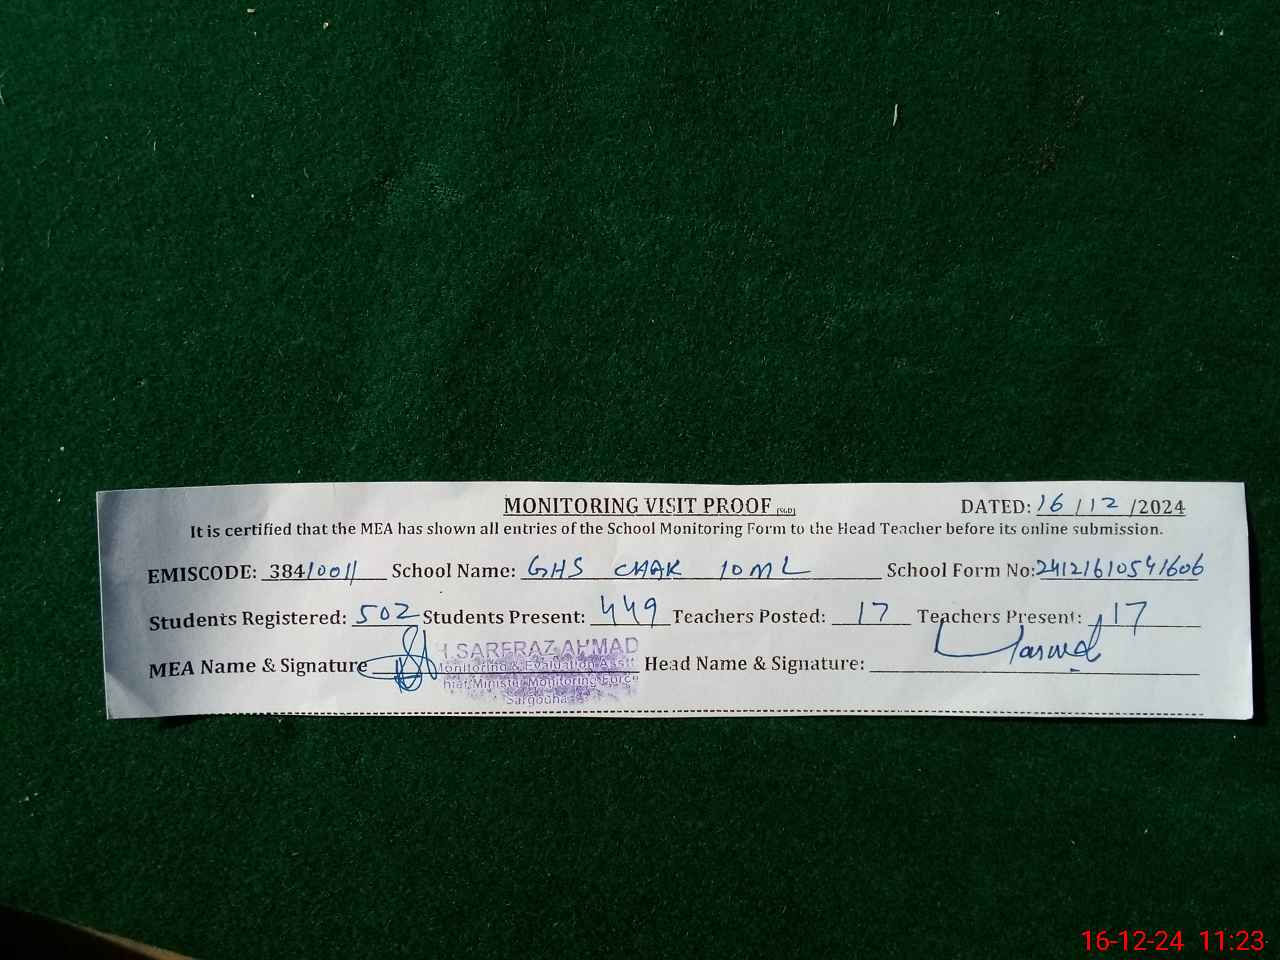 MONITORING VISIT PROOF (SGD) DATED: 16/12/2024
It is certified that the MEA has shown all entries of the School Monitoring Form to the Head Teacher before its online submission.
EMISCODE: 38410011 School Name: GHS CHAK 10 ML School Form No: 24121610541606
Students Registered: 502 Students Present: 449 Teachers Posted: 17 Teachers Present: 17
MEA Name & Signature Head Name & Signature:
H.SARFRAZ AHMAD
Monitoring & Evaluation Asstt
Chief Minister Monitoring Force
Sargodha
16-12-24 11:23